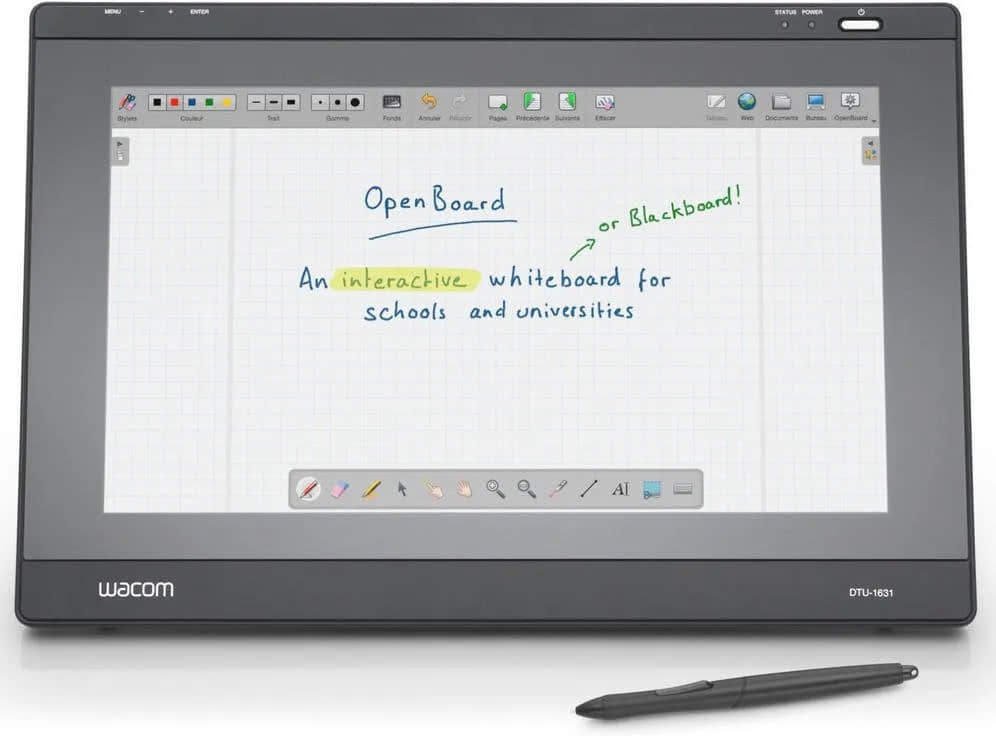 MENU - + ENTER
STATUS POWER
Stylets Couleur Trait Gomme Fonds Annuler Refaire Pages Précédente Suivante Effacer Tableau Web Documents Bureau OpenBoard
OpenBoard
or Blackboard!
An interactive whiteboard for
schools and universities
AI
wacom
DTU-1631